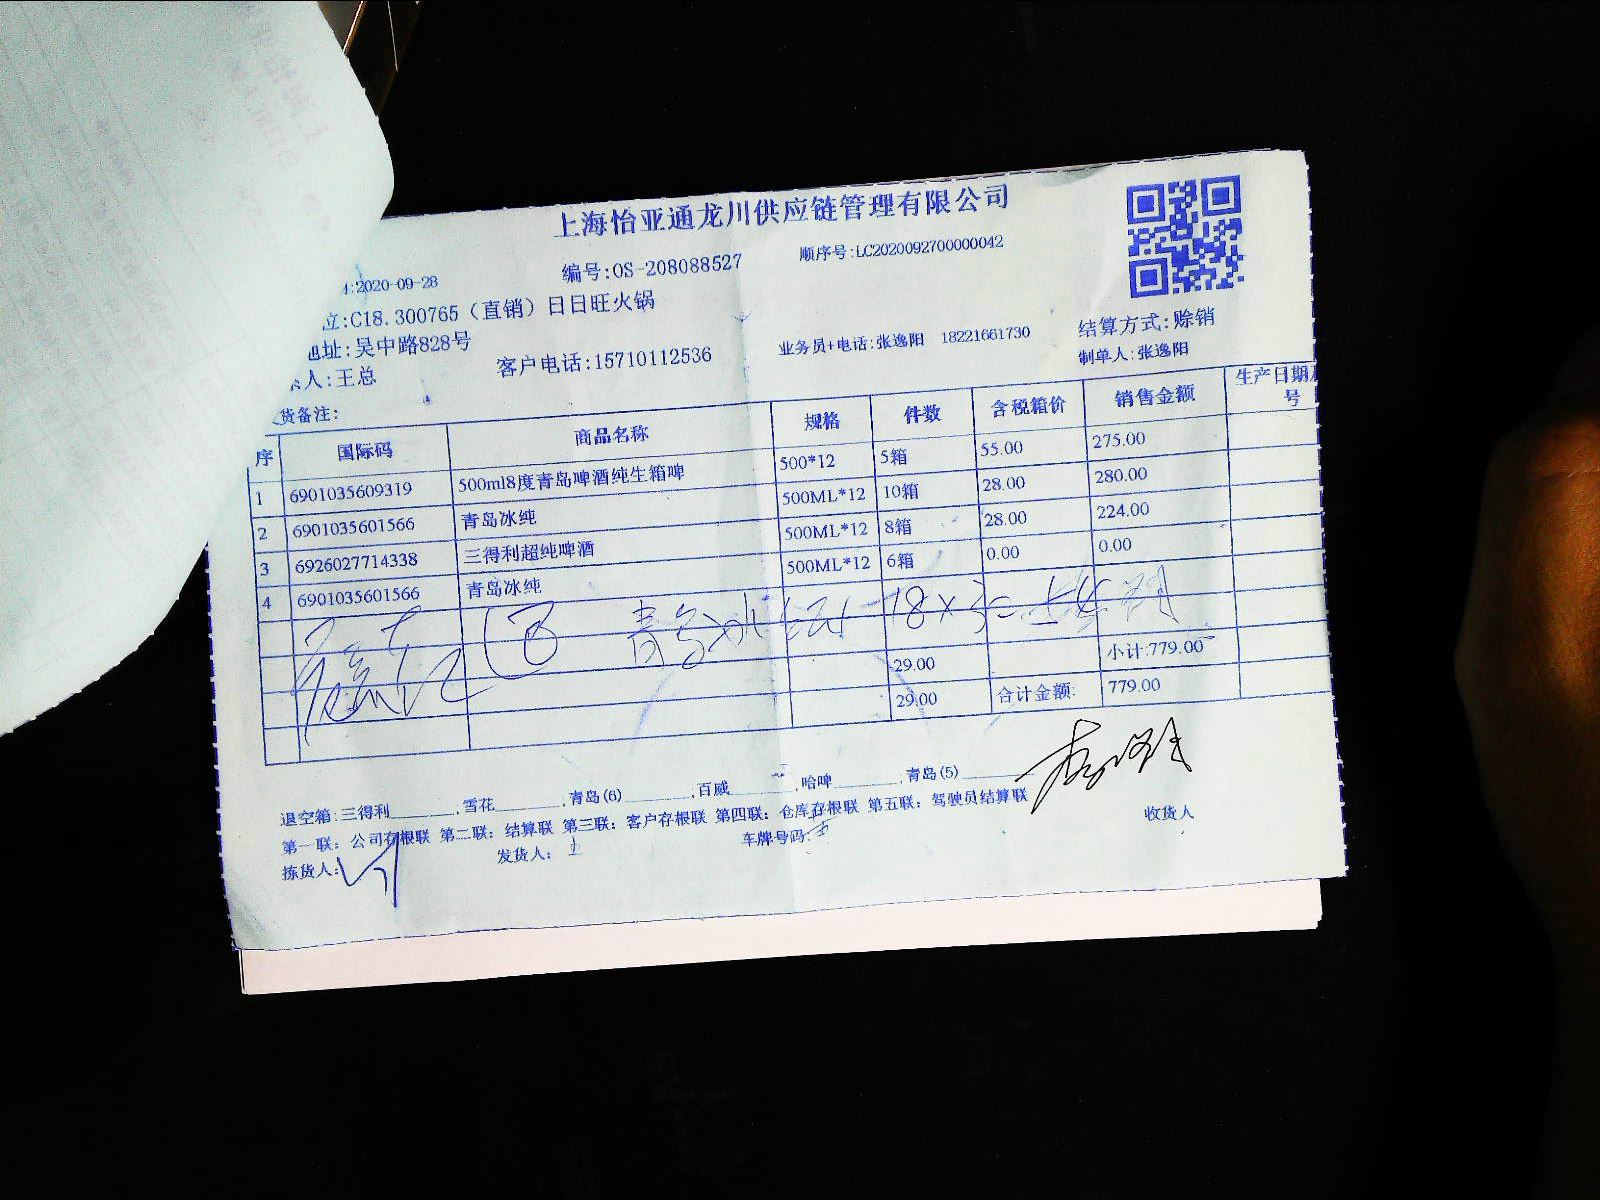 上海怡亚通龙川供应链管理有限公司
:2020-09-28 编号:OS-208088527 顺序号:LC2020092700000042
:C18.300765（直销）日日旺火锅
地址:吴中路828号 客户电话:15710112536 业务员+电话:张逸阳 18221661730 结算方式:赊销
人:王总 制单人:张逸阳
货备注:
序 国际码 商品名称 规格 件数 含税箱价 销售金额 生产日期
号
1 6901035609319 500ml8度青岛啤酒纯生箱啤 500*12 5箱 55.00 275.00
2 6901035601566 青岛冰纯 500ML*12 10箱 28.00 280.00
3 6926027714338 三得利超纯啤酒 500ML*12 8箱 28.00 224.00
4 6901035601566 青岛冰纯 500ML*12 6箱 0.00 0.00
青岛冰红 18×3=54
29.00 小计:779.00
29.00 合计金额: 779.00
退空箱:三得利______,雪花______,青岛(6)______,百威______,哈啤______,青岛(5)______
第一联：公司存根联 第二联：结算联 第三联：客户存根联 第四联：仓库存根联 第五联：驾驶员结算联
拣货人: 发货人: 车牌号码: 收货人